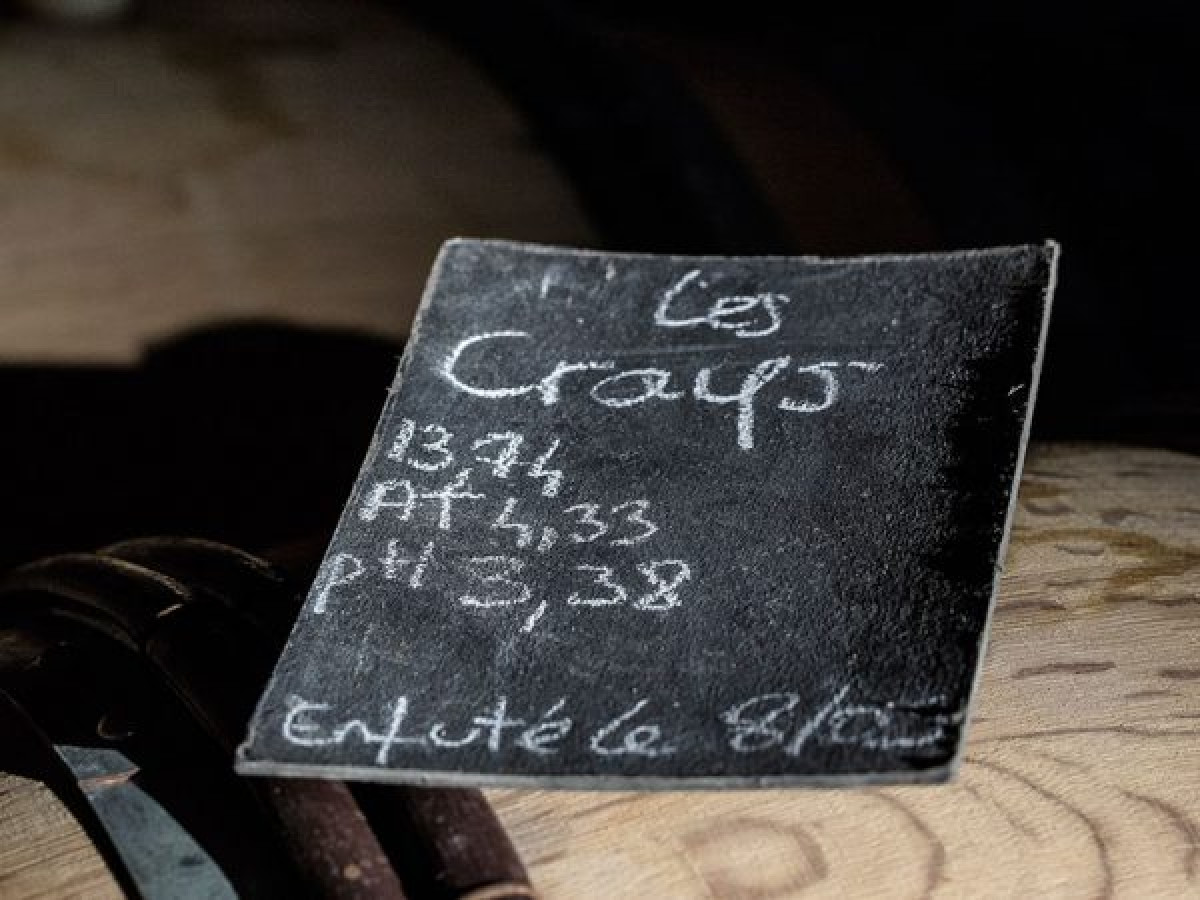 Les
Crays
13,74
AT 4,33
pH 3,38
Enfuté le 8/